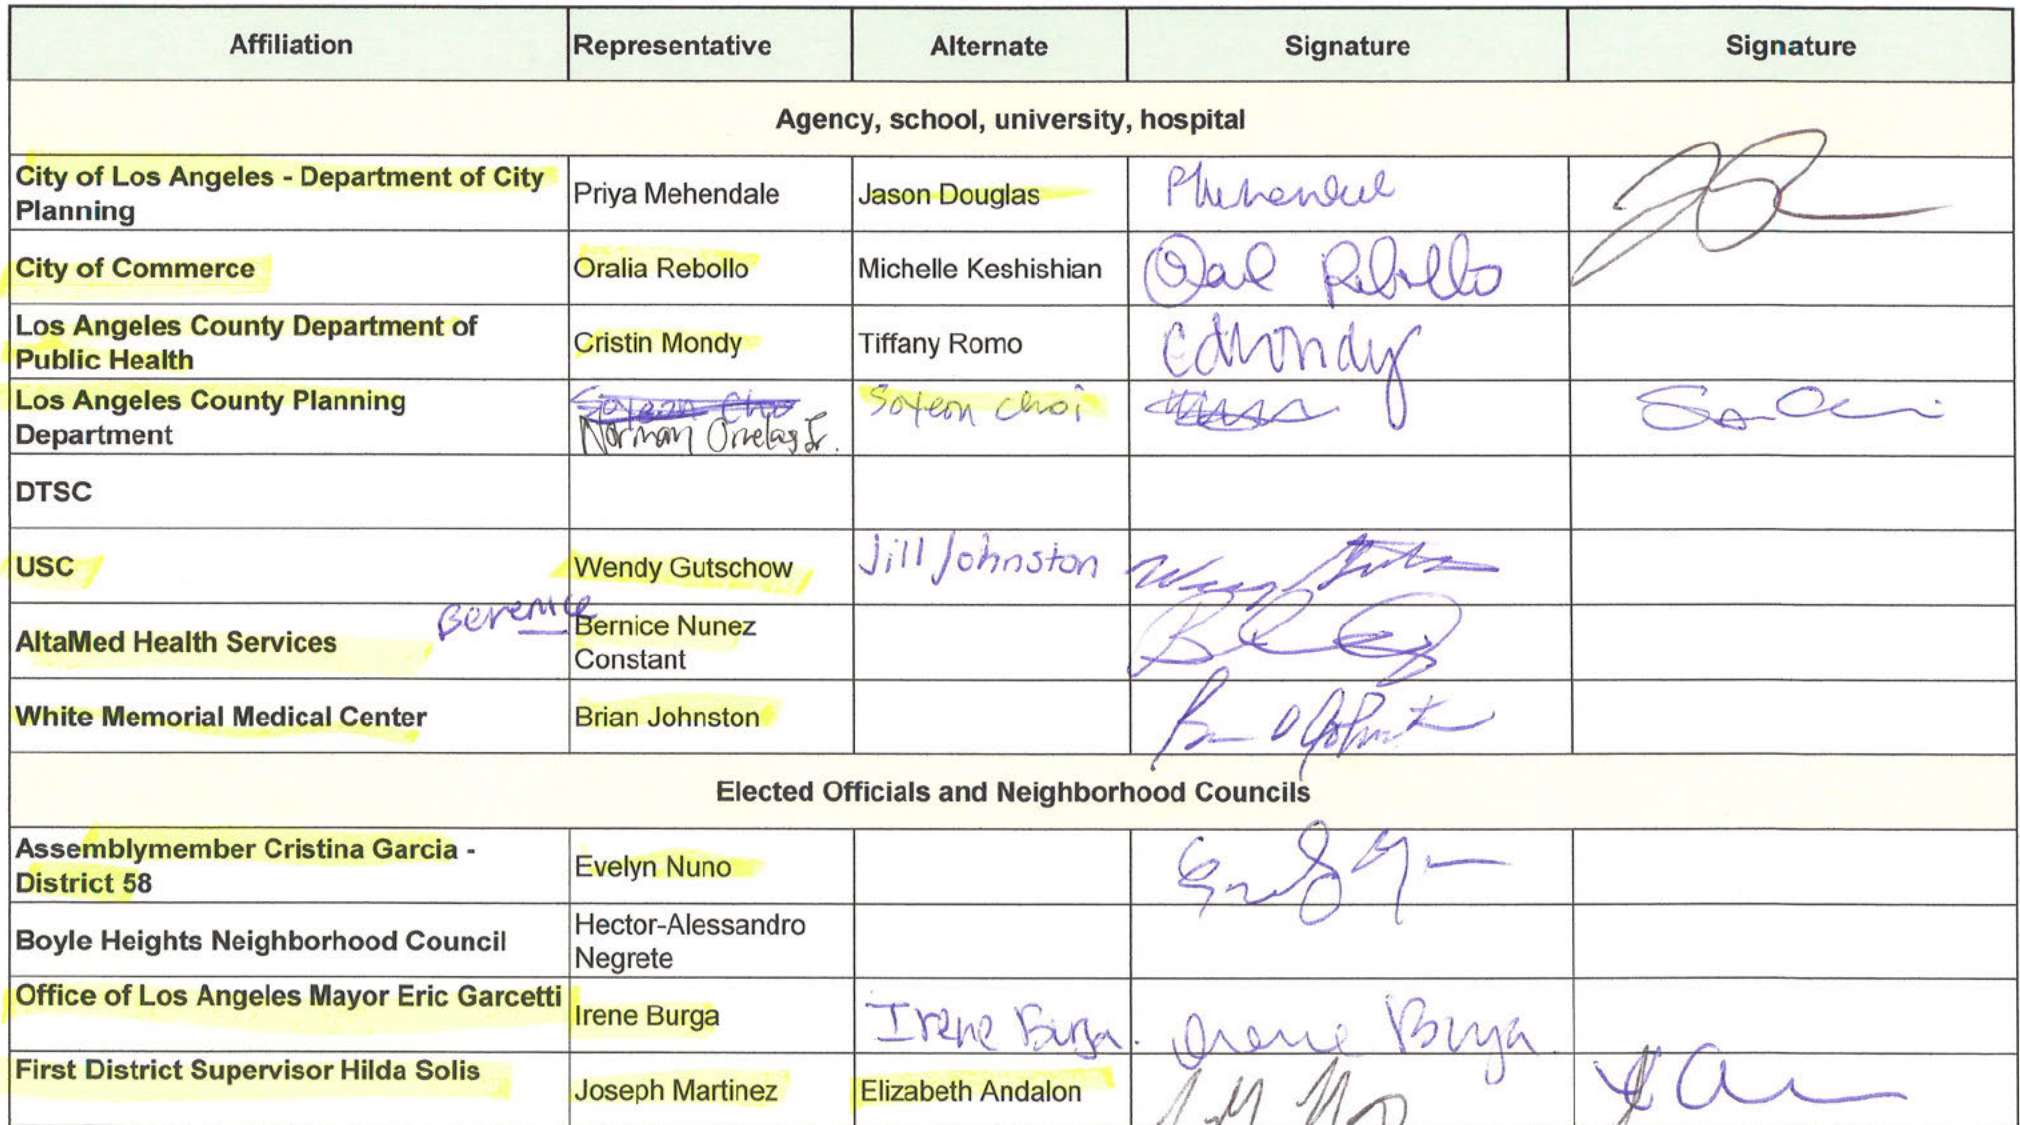 Affiliation Representative Alternate Signature Signature
Agency, school, university, hospital
City of Los Angeles - Department of City
Planning
Priya Mehendale Jason Douglas
City of Commerce Oralia Rebollo Michelle Keshishian Rebollo
Los Angeles County Department of
Public Health
Cristin Mondy Tiffany Romo CdMondy
Los Angeles County Planning
Department
Norman Ornelas Jr. Soyeon Choi
DTSC
USC Wendy Gutschow Jill Johnston
Berenice
AltaMed Health Services
Bernice Nunez
Constant
White Memorial Medical Center Brian Johnston
Elected Officials and Neighborhood Councils
Assemblymember Cristina Garcia -
District 58
Evelyn Nuno
Boyle Heights Neighborhood Council
Hector-Alessandro
Negrete
Office of Los Angeles Mayor Eric Garcetti
Irene Burga Irene Burga. Irene Burga
First District Supervisor Hilda Solis
Joseph Martinez Elizabeth Andalon